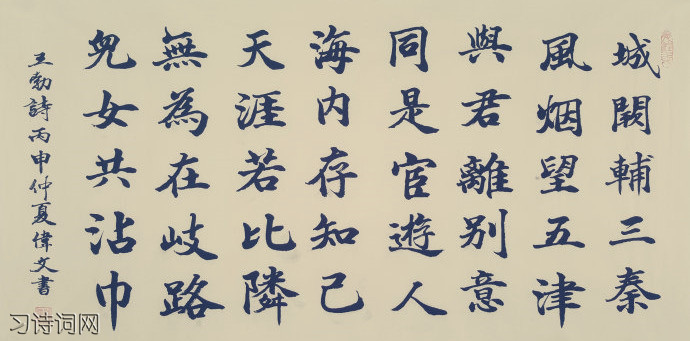 城闕輔三秦
風烟望五津
與君離別意
同是宦遊人
海内存知己
天涯若比隣
無為在岐路
兒女共沾巾
王勃詩丙申仲夏偉文書
习诗词网